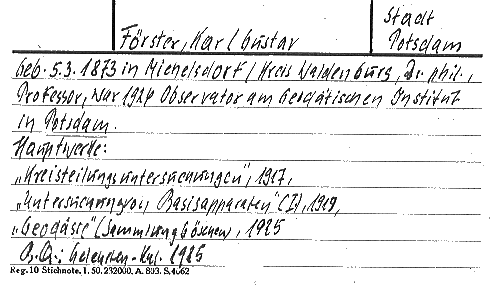 Förster, Karl Gustav
Stadt
Potsdam
Geb. 5.3.1873 in Michelsdorf/Kreis Waldenburg, Dr. phil.,
Professor, war 1924 Observator am Geodätischen Institut
in Potsdam.
Hauptwerke:
„Kreisteilungsuntersuchungen", 1917,
„Untersuchung von Basisapparaten" (I), 1919,
„Geodäsie" (Sammlung Göschen), 1925
Gelehrten-Kal. 1925
Reg. 10 Stichnote. I. 50. 232000. A. 803. S. 4662